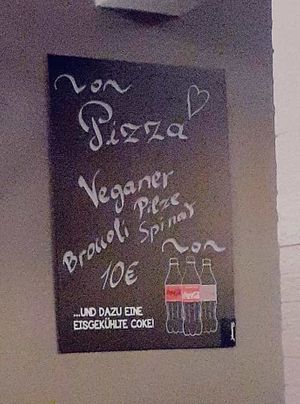 Pizza
Veganer
Broccoli Pilze
Spinat
10€
...UND DAZU EINE
EISGEKÜHLTE COKE!
Coca-Cola